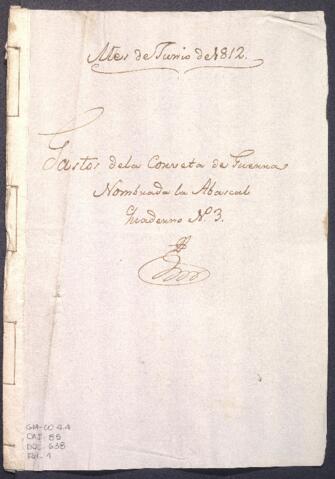 Mes de Junio de 1812.
Gastos dela Corveta de Guerra
Nombrada la Abascal
Quaderno N.º 3.
GM-CO 4.4
CAJ. 55
DOC. 638
Fol. 1